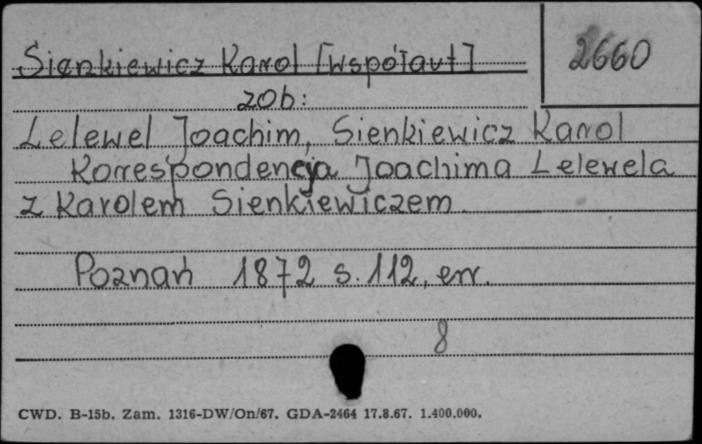 Sienkiewicz Karol [współaut]
2660
zob:
Lelewel Joachim, Sienkiewicz Karol
Korrespondencja Joachima Lelewela
z Karolem Sienkiewiczem
Poznań 1872 s. 112, err.
8
CWD. B-15b. Zam. 1316-DW/On/67. GDA-2464 17.8.67. 1.400.000.